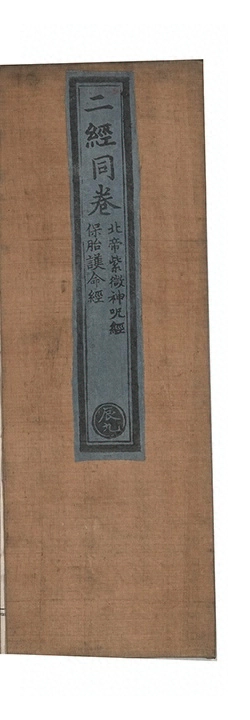 二經同卷
北帝紫微神呪經
保胎護命經
辰九